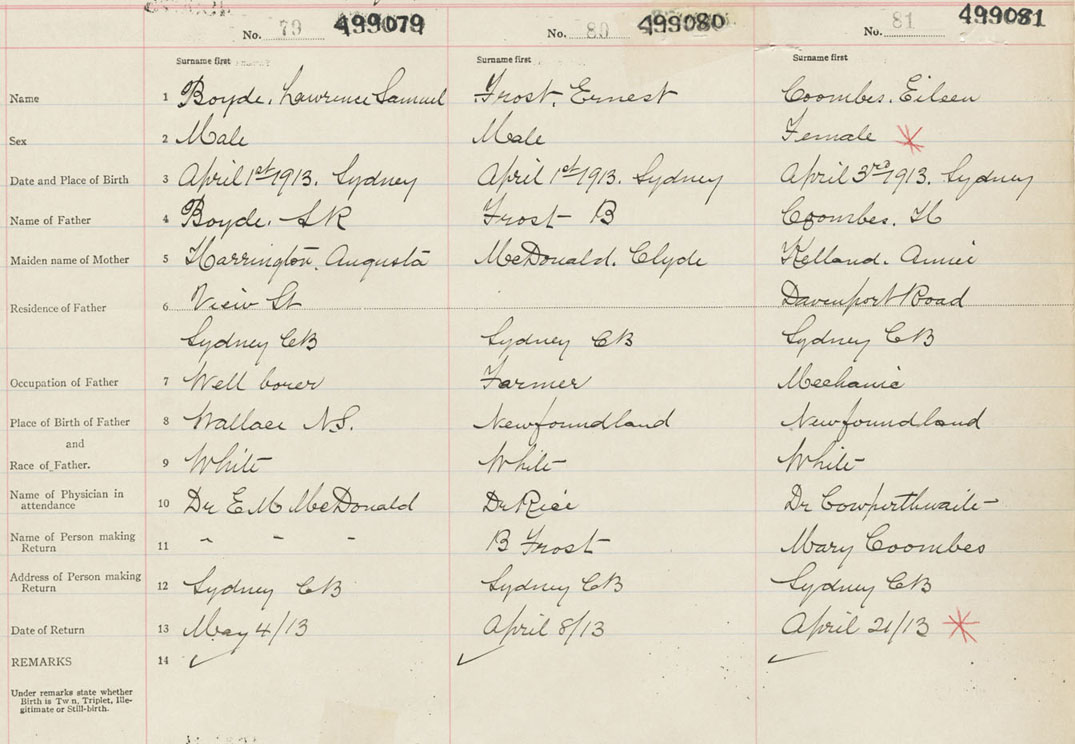 No. 79 499079 No. 80 499080 No. 81 499081
Surname first Surname first Surname first
Name 1 Boyde, Lawrence Samuel Frost, Ernest Coombes, Eileen
Sex 2 Male Male Female
Date and Place of Birth 3 April 1st 1913. Sydney April 1st 1913. Sydney April 3rd 1913. Sydney
Name of Father 4 Boyde. SR Frost B Coombes. H
Maiden name of Mother 5 Harrington, Augusta McDonald. Clyde Kelland. Annie
Residence of Father 6 View St Davenport Road
Sydney CB Sydney CB Sydney CB
Occupation of Father 7 Well borer Farmer Mechanic
Place of Birth of Father 8 Wallace NS. Newfoundland Newfoundland
and
Race of Father. 9 White White White
Name of Physician in attendance 10 Dr E M McDonald Dr Rice Dr Cowperthwaite
Name of Person making Return 11 " " " B Frost Mary Coombes
Address of Person making Return 12 Sydney CB Sydney CB Sydney CB
Date of Return 13 May 4/13 April 8/13 April 21/13
REMARKS 14
Under remarks state whether
Birth is Tw n, Triplet, Ille-
gitimate or Still-birth.